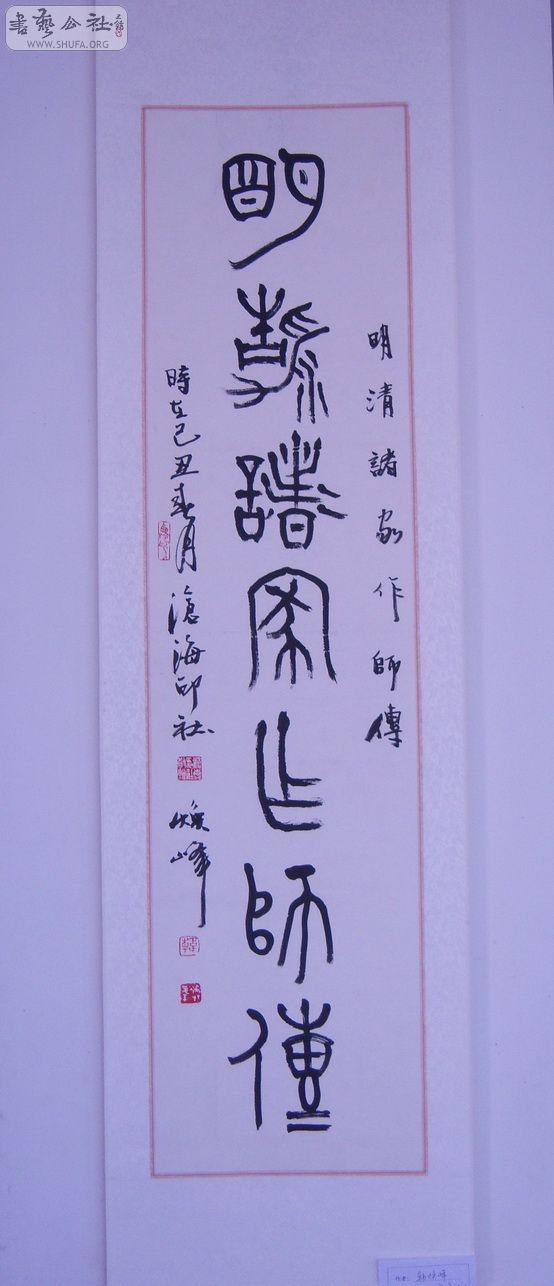 書藝公社
WWW.SHUFA.ORG
明清諸家作師傳
明清諸家作師傳
時在己丑春月滄海印社
煥峰